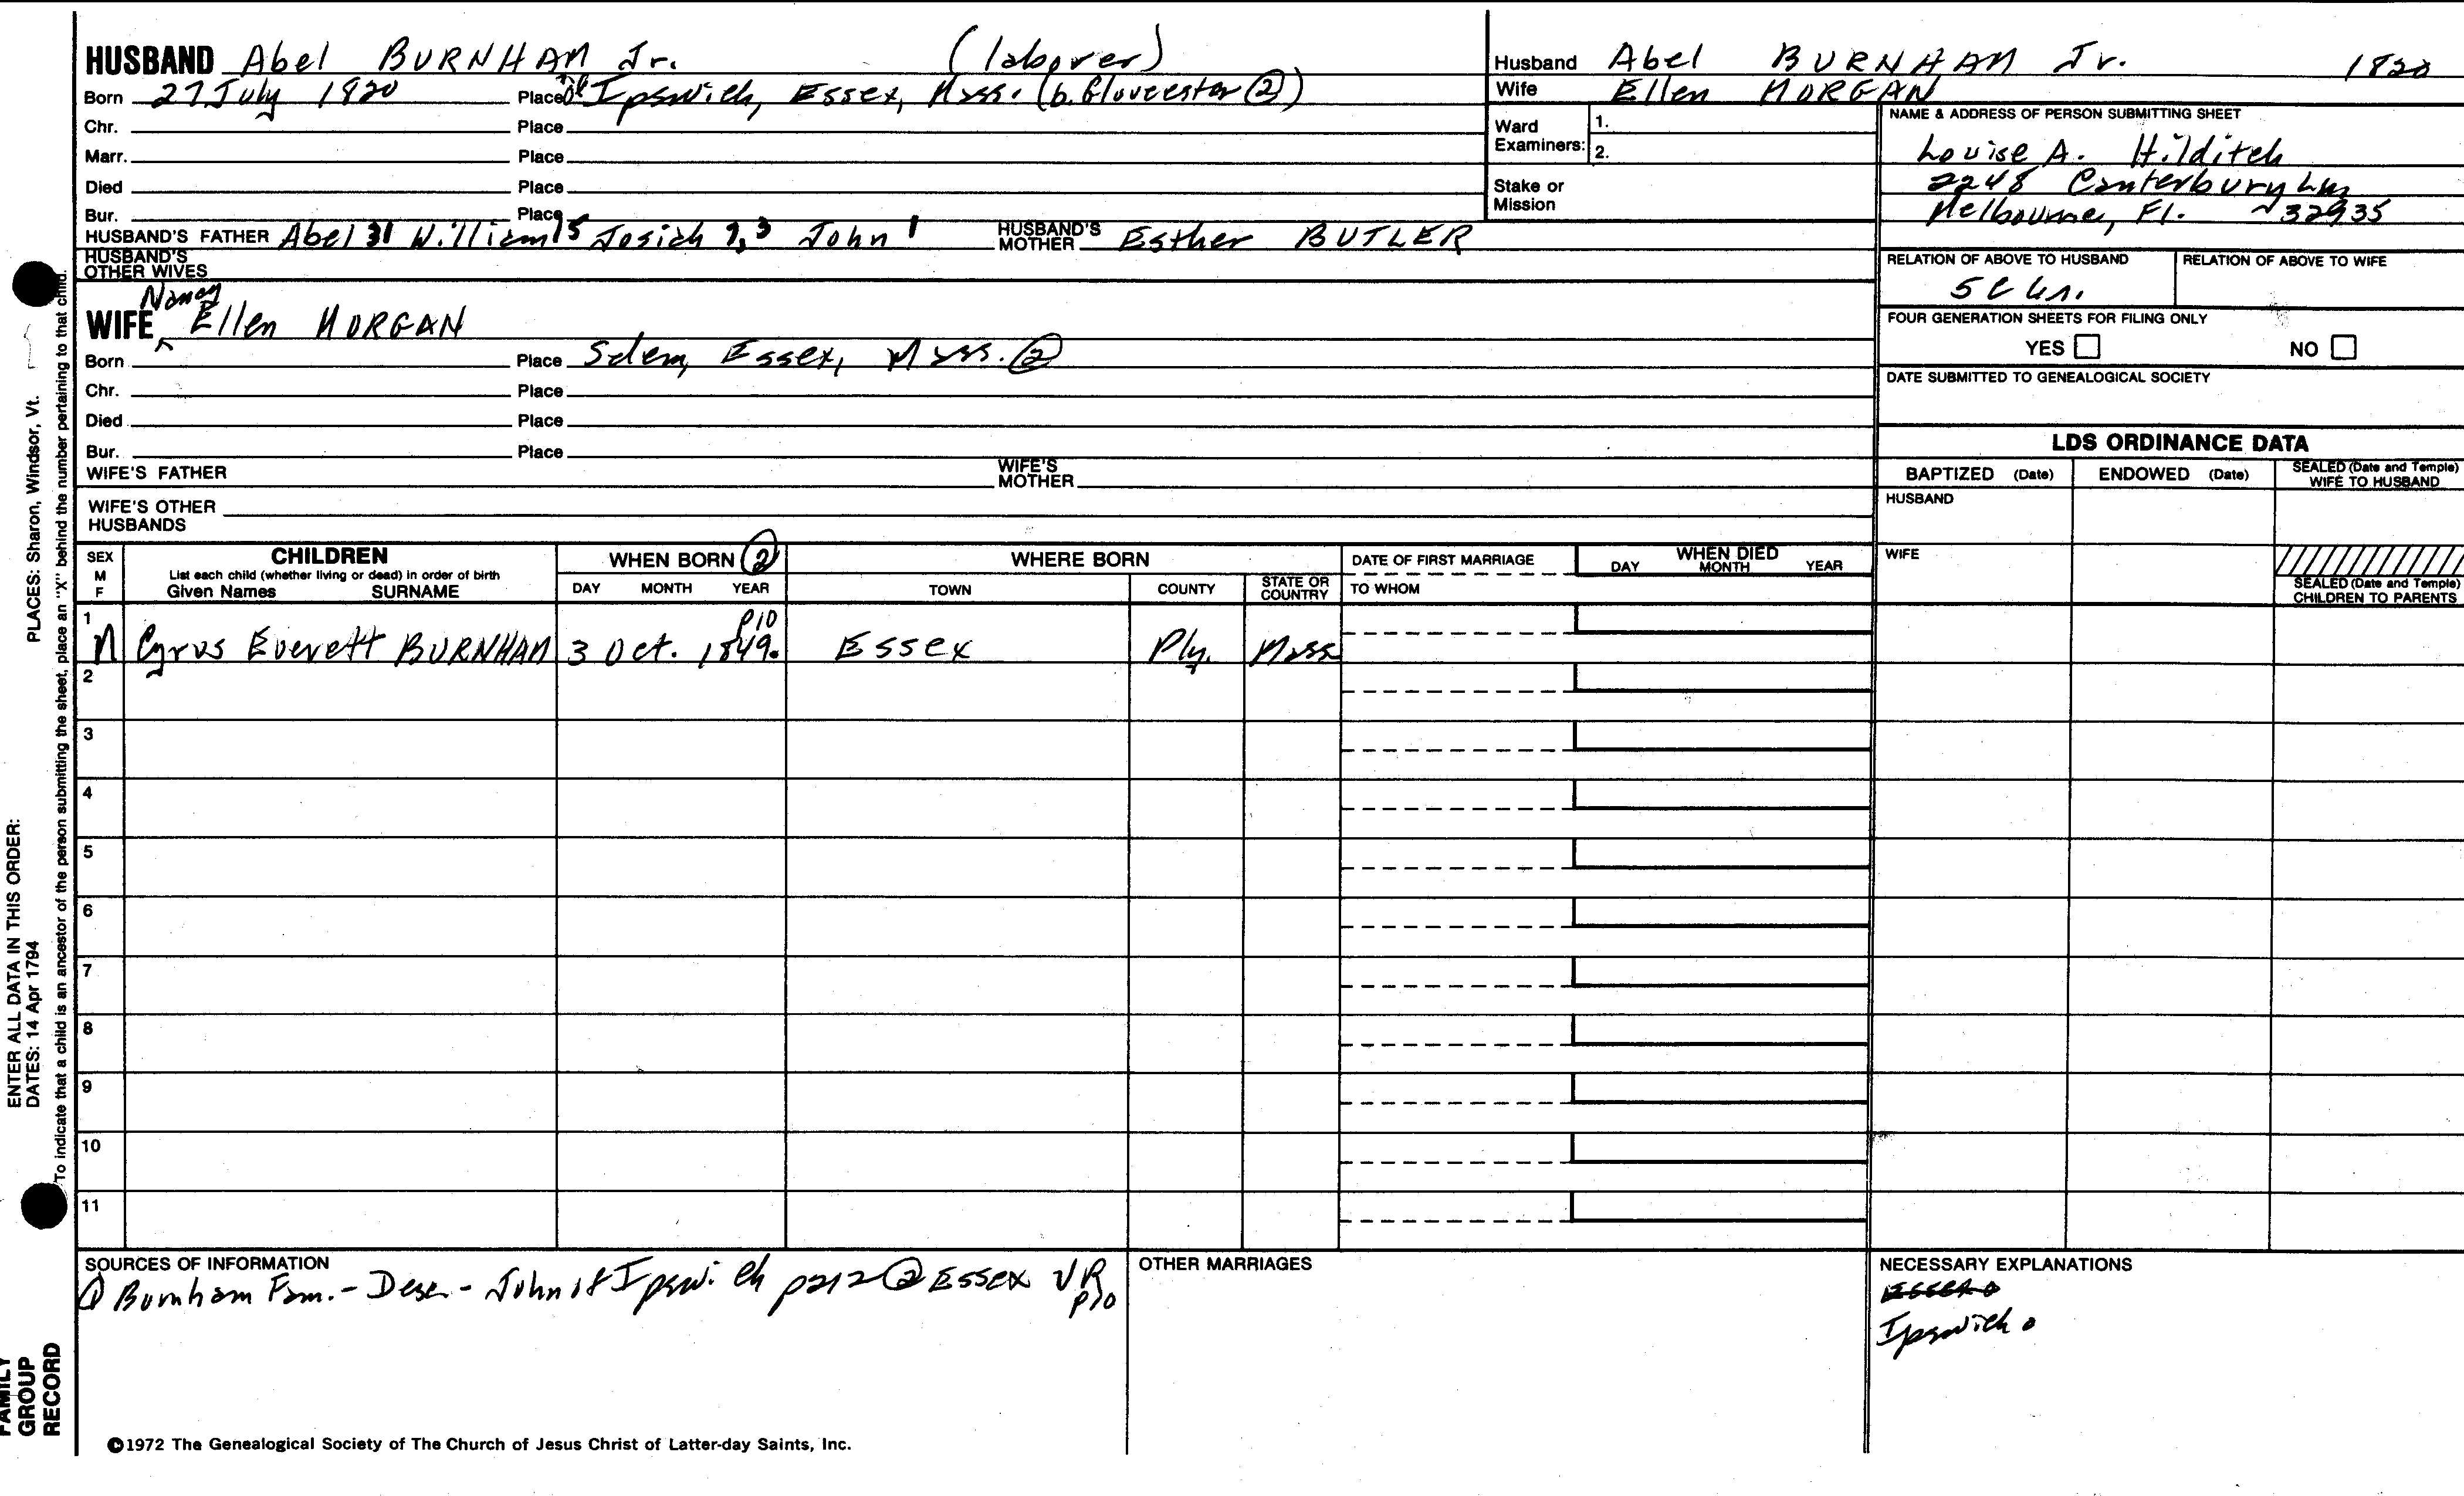 HUSBAND Abel BURNHAM Jr. (laborer)
Born 27 July 1820 Place of Ipswich, Essex, Mass. (b. Gloucester ②)
Chr. Place
Marr. Place
Died Place
Bur. Place
HUSBAND'S FATHER Abel 31 William 15 Josiah 7, 3 John 1 HUSBAND'S MOTHER Esther BUTLER
HUSBAND'S OTHER WIVES
Nancy
WIFE Ellen MORGAN
Born Place Salem, Essex, Mass. ②
Chr. Place
Died Place
Bur. Place
WIFE'S FATHER WIFE'S MOTHER
WIFE'S OTHER HUSBANDS
Husband Abel BURNHAM Jr. 1820
Wife Ellen MORGAN
Ward Examiners: 1.
2.
Stake or Mission
NAME & ADDRESS OF PERSON SUBMITTING SHEET
Louise A. Hilditch
2248 Canterbury Ln
Melbourne, Fl. 32935
RELATION OF ABOVE TO HUSBAND RELATION OF ABOVE TO WIFE
FOUR GENERATION SHEETS FOR FILING ONLY
YES NO
DATE SUBMITTED TO GENEALOGICAL SOCIETY
LDS ORDINANCE DATA
BAPTIZED (Date) ENDOWED (Date) SEALED (Date and Temple) WIFE TO HUSBAND
HUSBAND
WIFE
SEALED (Date and Temple) CHILDREN TO PARENTS
SEX M F CHILDREN WHEN BORN ② WHERE BORN DATE OF FIRST MARRIAGE WHEN DIED
List each child (whether living or dead) in order of birth
Given Names SURNAME DAY MONTH YEAR TOWN COUNTY STATE OR COUNTRY TO WHOM DAY MONTH YEAR
P10
1 M Cyrus Everett BURNHAM 3 Oct. 1849. Essex Ply. Mass
2
3
4
5
6
7
8
9
10
11
SOURCES OF INFORMATION
① Burnham Fam. - Desc - John of Ipswich p212 ② Essex VR p10
OTHER MARRIAGES
NECESSARY EXPLANATIONS
Ipswich
©1972 The Genealogical Society of The Church of Jesus Christ of Latter-day Saints, Inc.
PLACES: Sharon, Windsor, Vt.
ENTER ALL DATA IN THIS ORDER:
DATES: 14 Apr 1794
To indicate that a child is an ancestor of the person submitting the sheet, place an "X" behind the number pertaining to that child.
FAMILY GROUP RECORD